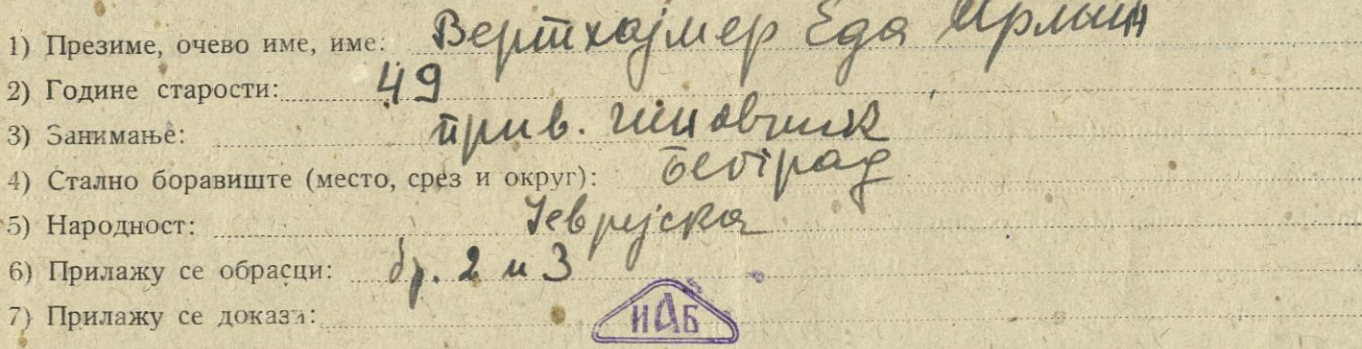 1) Презиме, очево име, име: Вертхајмер Еда Ирмин
2) Године старости: 49
3) Занимање: прив. чиновник
4) Стално боравиште (место, срез и округ): Београд
5) Народност: Јеврејска
6) Прилажу се обрасци: бр. 2 и 3
7) Прилажу се докази:
ИАБ